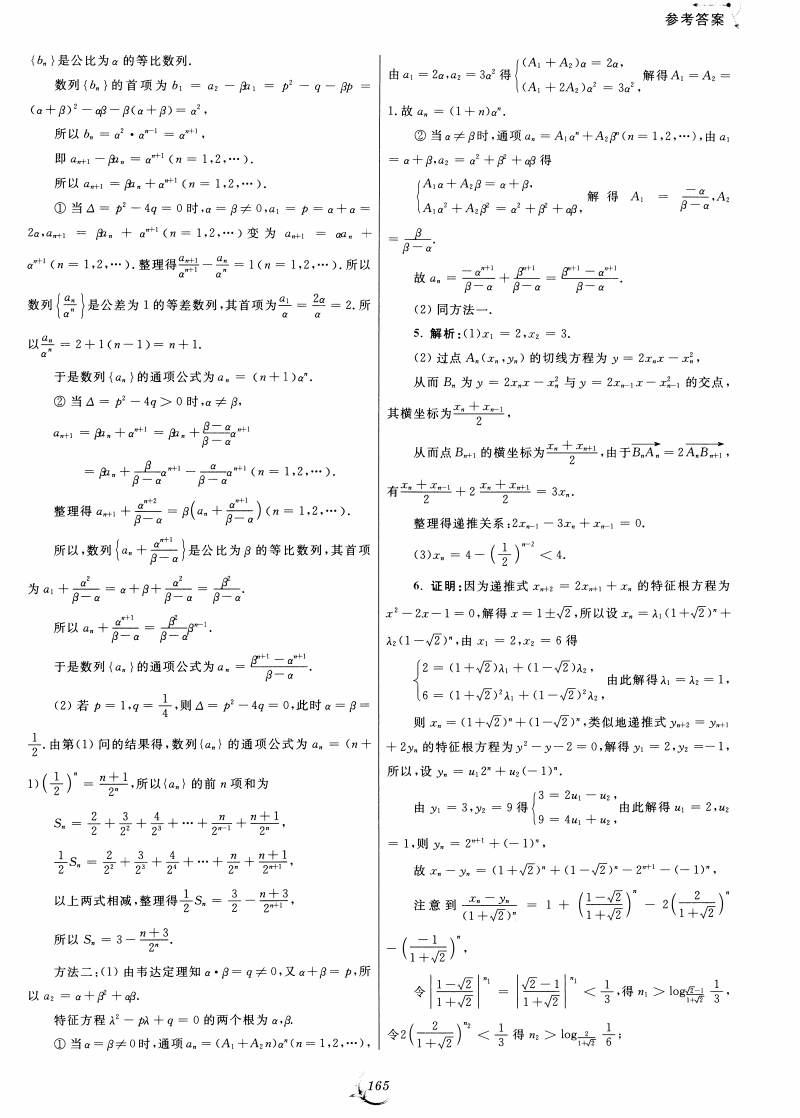 参考答案
{bₙ}是公比为α的等比数列.
数列{bₙ}的首项为b₁ = a₂ − βa₁ = p² − q − βp =
(α+β)² − αβ − β(α+β) = α²,
所以bₙ = α² · αⁿ⁻¹ = αⁿ⁺¹,
即aₙ₊₁ − βaₙ = αⁿ⁺¹ (n = 1,2,…).
所以aₙ₊₁ = βaₙ + αⁿ⁺¹ (n = 1,2,…).
① 当Δ = p² − 4q = 0时,α = β ≠ 0,a₁ = p = α + α =
2α,aₙ₊₁ = βaₙ + αⁿ⁺¹ (n = 1,2,…) 变为 aₙ₊₁ = αaₙ +
αⁿ⁺¹ (n = 1,2,…).整理得aₙ₊₁/αⁿ⁺¹ − aₙ/αⁿ = 1(n = 1,2,…).所以
数列{aₙ/αⁿ}是公差为1的等差数列,其首项为a₁/α = 2α/α = 2.所
以aₙ/αⁿ = 2+1(n−1) = n+1.
于是数列{aₙ}的通项公式为aₙ = (n+1)αⁿ.
② 当Δ = p² − 4q > 0时,α ≠ β,
aₙ₊₁ = βaₙ + αⁿ⁺¹ = βaₙ + (β−α)/(β−α) αⁿ⁺¹
= βaₙ + β/(β−α) αⁿ⁺¹ − α/(β−α) αⁿ⁺¹ (n = 1,2,…).
整理得aₙ₊₁ + αⁿ⁺²/(β−α) = β(aₙ + αⁿ⁺¹/(β−α)) (n = 1,2,…).
所以,数列{aₙ + αⁿ⁺¹/(β−α)}是公比为β的等比数列,其首项
为a₁ + α²/(β−α) = α+β+ α²/(β−α) = β²/(β−α).
所以aₙ + αⁿ⁺¹/(β−α) = β²/(β−α) βⁿ⁻¹.
于是数列{aₙ}的通项公式为aₙ = (βⁿ⁺¹ − αⁿ⁺¹)/(β−α).
(2) 若 p = 1,q = 1/4,则Δ = p² − 4q = 0,此时α = β =
1/2.由第(1)问的结果得,数列{aₙ}的通项公式为aₙ = (n+
1)(1/2)ⁿ = (n+1)/2ⁿ,所以{aₙ}的前n项和为
Sₙ = 2/2 + 3/2² + 4/2³ + … + n/2ⁿ⁻¹ + (n+1)/2ⁿ,
1/2 Sₙ = 2/2² + 3/2³ + 4/2⁴ + … + n/2ⁿ + (n+1)/2ⁿ⁺¹,
以上两式相减,整理得1/2 Sₙ = 3/2 − (n+3)/2ⁿ⁺¹,
所以 Sₙ = 3 − (n+3)/2ⁿ.
方法二:(1) 由韦达定理知α·β = q ≠ 0,又α+β = p,所
以a₂ = α+β²+αβ.
特征方程λ² − pλ + q = 0的两个根为α,β.
① 当α = β≠0时,通项aₙ = (A₁+A₂n)αⁿ(n = 1,2,…),
由a₁ = 2α,a₂ = 3α²得{(A₁+A₂)α = 2α, (A₁+2A₂)α² = 3α², 解得A₁ = A₂ =
1.故aₙ = (1+n)αⁿ.
② 当α≠β时,通项aₙ = A₁αⁿ + A₂βⁿ(n = 1,2,…),由a₁
= α+β,a₂ = α²+β²+αβ得
{A₁α+A₂β = α+β, A₁α²+A₂β² = α²+β²+αβ, 解得 A₁ = −α/(β−α),A₂
= β/(β−α).
故aₙ = −αⁿ⁺¹/(β−α) + βⁿ⁺¹/(β−α) = (βⁿ⁺¹ − αⁿ⁺¹)/(β−α).
(2) 同方法一.
5. 解析:(1)x₁ = 2,x₂ = 3.
(2) 过点Aₙ(xₙ,yₙ)的切线方程为y = 2xₙx − xₙ²,
从而Bₙ为y = 2xₙx − xₙ²与y = 2xₙ₋₁x − xₙ₋₁²的交点,
其横坐标为(xₙ+xₙ₋₁)/2,
从而点Bₙ₊₁的横坐标为(xₙ+xₙ₊₁)/2,由于BₙAₙ→ = 2AₙBₙ₊₁→,
有(xₙ+xₙ₋₁)/2 + 2 (xₙ+xₙ₊₁)/2 = 3xₙ.
整理得递推关系:2xₙ₋₁ − 3xₙ + xₙ₋₁ = 0.
(3)xₙ = 4 − (1/2)ⁿ⁻² < 4.
6. 证明:因为递推式 xₙ₊₂ = 2xₙ₊₁ + xₙ 的特征根方程为
x²−2x−1 = 0,解得 x = 1±√2,所以设 xₙ = λ₁(1+√2)ⁿ+
λ₂(1−√2)ⁿ,由 x₁ = 2,x₂ = 6得
{2 = (1+√2)λ₁ + (1−√2)λ₂, 6 = (1+√2)²λ₁ + (1−√2)²λ₂, 由此解得λ₁ = λ₂ = 1,
则 xₙ = (1+√2)ⁿ+(1−√2)ⁿ,类似地递推式 yₙ₊₂ = yₙ₊₁
+2yₙ的特征根方程为y²−y−2 = 0,解得 y₁ = 2,y₂ =−1,
所以,设 yₙ = u₁2ⁿ + u₂(−1)ⁿ.
由 y₁ = 3,y₂ = 9得{3 = 2u₁ − u₂, 9 = 4u₁ + u₂, 由此解得 u₁ = 2,u₂
= 1,则 yₙ = 2ⁿ⁺¹ + (−1)ⁿ,
故 xₙ − yₙ = (1+√2)ⁿ + (1−√2)ⁿ − 2ⁿ⁺¹ − (−1)ⁿ,
注意到 (xₙ−yₙ)/(1+√2)ⁿ = 1 + ((1−√2)/(1+√2))ⁿ − 2(2/(1+√2))ⁿ
− (−1/(1+√2))ⁿ,
令|(1−√2)/(1+√2)|ⁿ¹ = |(√2−1)/(1+√2)|ⁿ¹ < 1/3,得n₁ > log_((√2−1)/(1+√2)) 1/3,
令2(2/(1+√2))ⁿ² < 1/3 得n₂ > log_(2/(1+√2)) 1/6;
165